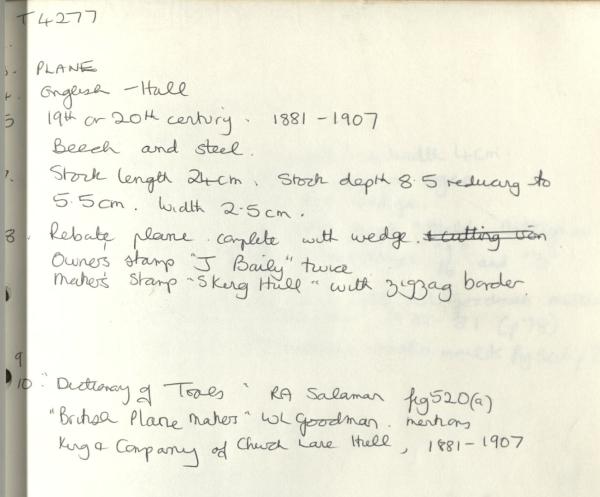 T4277
PLANE
English - Hull
5 19th or 20th century. 1881-1907
Beech and steel.
7. Stock length 24cm. Stock depth 8.5 reducing to
5.5cm. Width 2.5cm.
8. Rebate plane. complete with wedge. & cutting iron
Owners stamp "J Baily" twice
Makers stamp "S King Hull" with zigzag border.
9
10 "Dictionary of Tools" RA Salaman fig 520(a)
"British Plane Makers" WL Goodman. mentions
King & Company of Church Lane Hull, 1881-1907